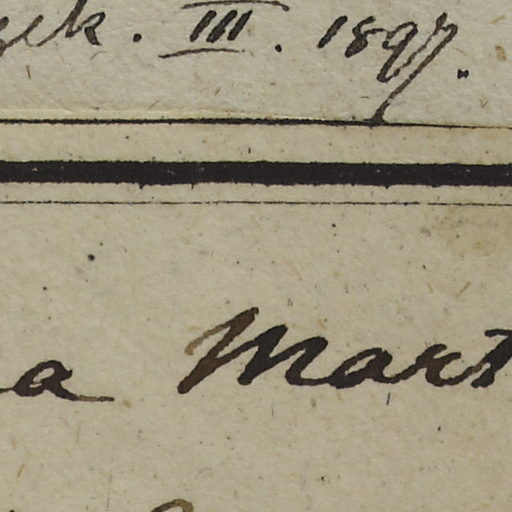 III. 1897.
a Mart